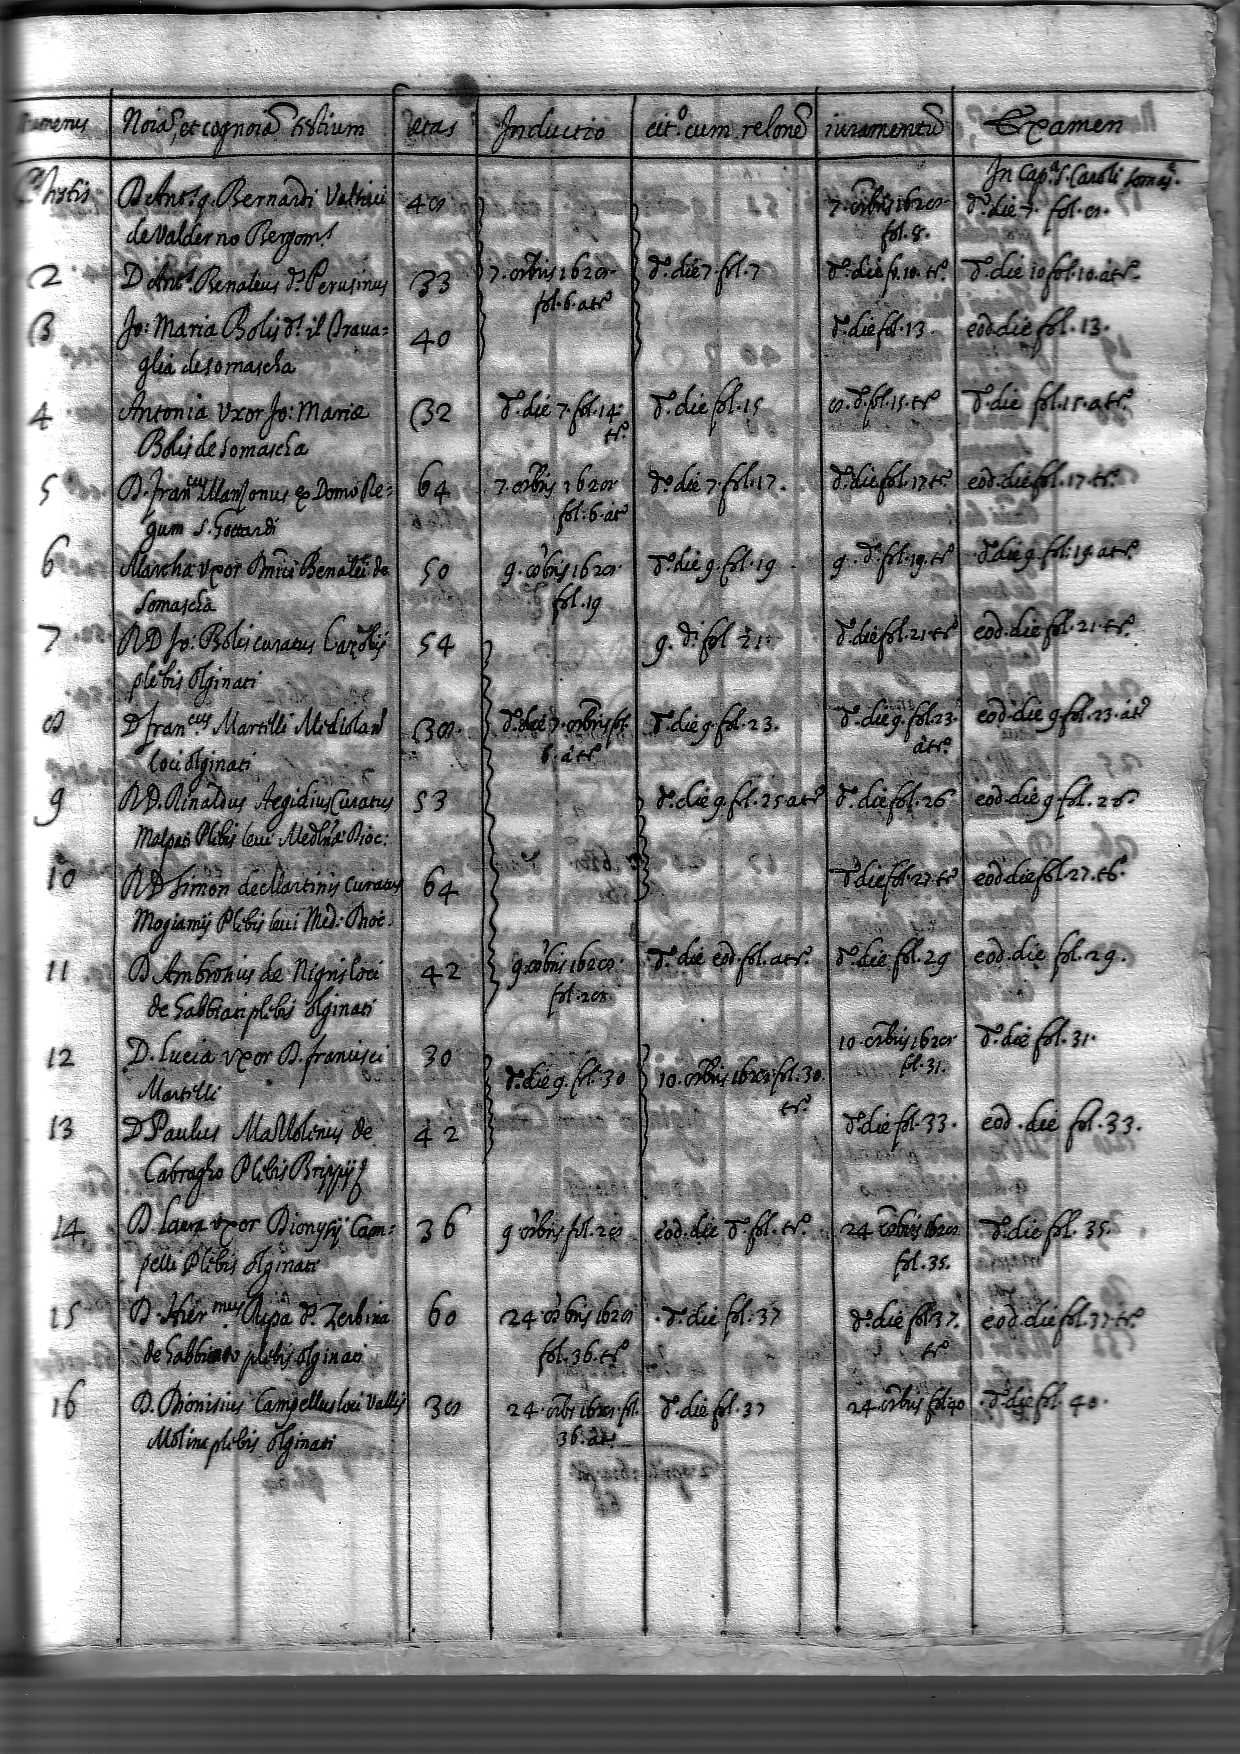 numerus Noia, et cognoia testium etas Inductio cit.º cum relone iuramentũ Examen
In Cap.ª S. Caroli Somas.ª
Pº testis D. Ant.s q. Bernardi Valtini 48 7. 8bris 1628. d.ª die 7. fol. 8.
de Valderno Bergom.s fol. 8.
2 D Ant.s Benaleus d.s Perusinus 33 7. 8bris 1628. d.ª die 7. fol. 7 d.ª die f. 10. tr.º d.ª die 10 fol. 10. a tr.º
fol. 6. a tr.º
3 Jo: Maria Bolis d.s il Brava= 40 d.ª die fol. 13. eod. die fol. 13.
glia de Somascha
4 Antonia uxor Jo: Mariæ 32 d.ª die 7. fol. 14. d.ª die fol. 15 d. fol. 15. tr.º d.ª die fol. 15. a tr.º
tr.º
Bolis de Somascha
5 D. Fran.cus Manzonus ex Domo Re= 64 7. 8bris 1628 d.ª die 7. fol. 17. d.ª die fol. 17 tr.º eod. die fol. 17. tr.º
gum S. Gottardi fol. 6. a tr.º
6 Martha uxor Dnici Benalei de 50 9. 8bris 1628. d.ª die 9. fol. 19 9. d.ª fol. 19. tr.º d.ª die 9. fol. 19 a tr.º
Somascha fol. 19
7 R D Jo. Bolis curatus 54 9. d.ª fol 21. d.ª die fol. 21. tr.º eod. die fol. 21. tr.º
plebis Olginati
8 D Fran.cus Martilli Mediolan 38. d.ª die 7. 8bris fol. d.ª die 9. fol. 23. d.ª die 9. fol. 23. eod. die 9. fol. 23. a tr.º
loci Olginati 6. a tr.º a tr.º
9 R D. Rinaldus Aegidius Curatus 53 d.ª die 9. fol. 25 a tr.º d.ª die fol. 26 eod. die 9. fol. 26
Plebis Leuci Diœc:
10 R D Simon de Martinis Curatus 64 d.ª die fol. 27 tr.º eod. die fol. 27. tr.º
Plebis Leuci Med: Dioc.
11 D. Ambrosius de Nigris loci 42 9. 8bris 1628. d.ª die eod. fol. a tr.º d.ª die fol. 29 eod. die fol. 29.
de Gabbiati plebis Olginati fol. 28.
12 D. Lucia uxor D. Francisci 30 d.ª die 9. fol. 30 10. 8bris 1628 fol. 30. 10. 8bris 1628 d.ª die fol. 31.
tr.º fol. 31.
Martilli
13 D Paulus de 42 d.ª die fol. 33. eod. die fol. 33.
Plebis
14 D. Laura uxor Dionysij Cam= 36 9. 8bris fol. 28 eod. die d.ª fol. tr.º 24 8bris 1628 d.ª die fol. 35.
pelli Plebis Olginati fol. 35.
15 D. Hier.mus Ripa d.s Zerbina 60 24 8bris 1628 d.ª die fol. 37 d.ª die fol 37. eod. die fol. 37 tr.º
de Gabbiado plebis Olginati fol. 36. tr.º tr.º
16 D. Dionisius Campellus loci Vallis 38 24. 8bris 1628. fol. d.ª die fol. 37 24. 8bris fol 40 d.ª die fol. 40.
Molinæ plebis Olginati 36. a tr.